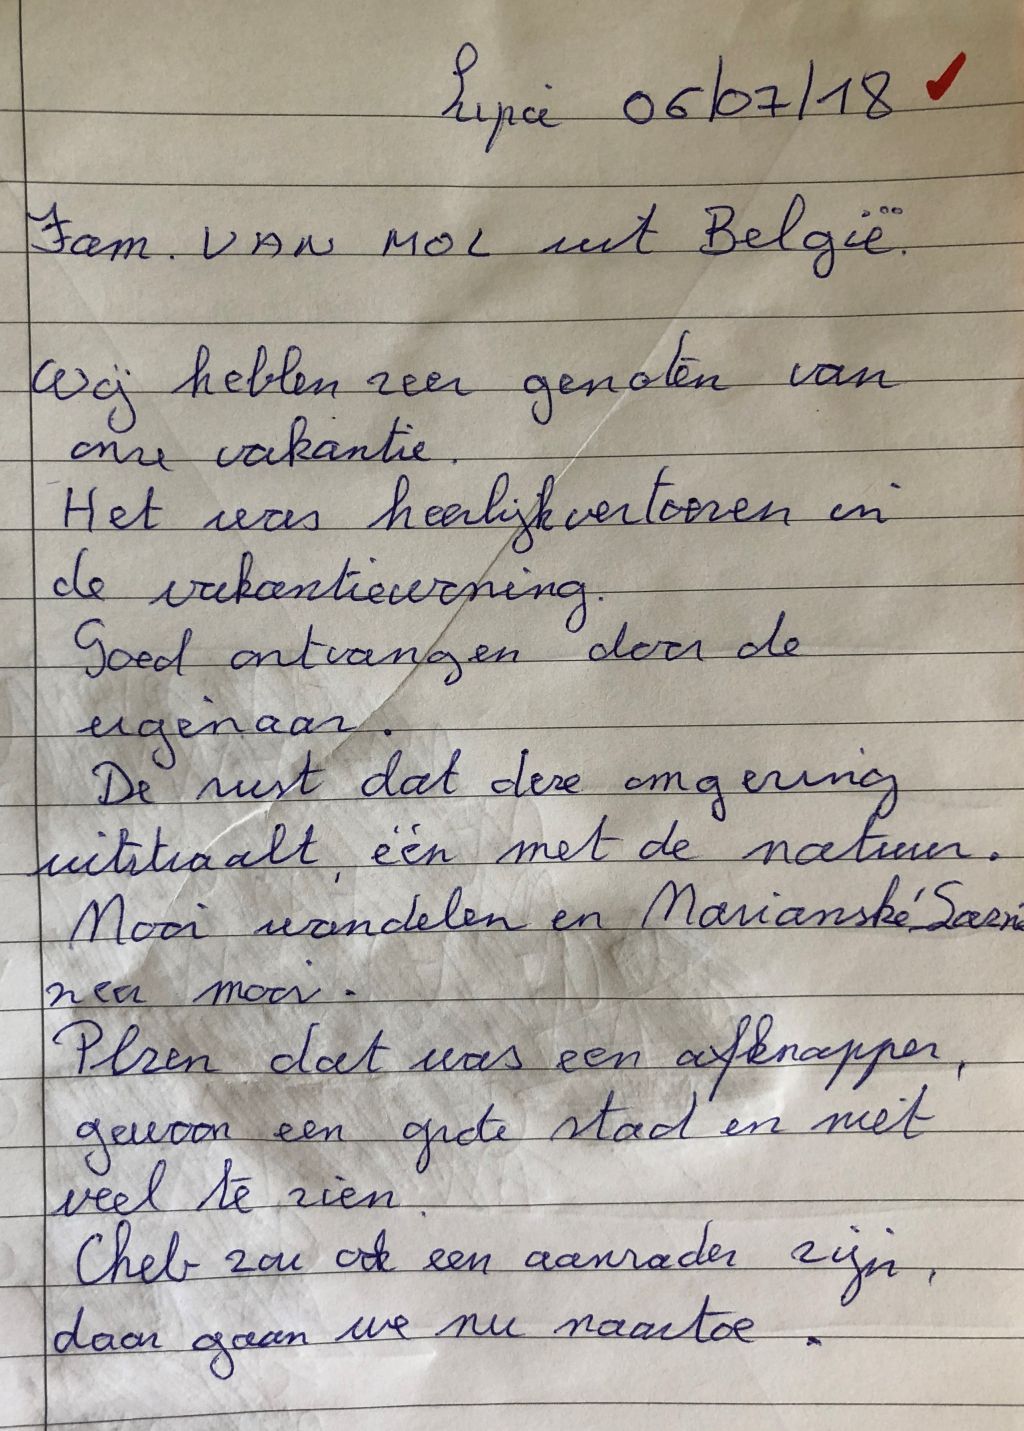 Lipá 06/07/18
Fam. VAN MOL uit België.
Wij hebben zeer genoten van
onze vakantie.
Het was heerlijk vertoeven in
de vakantiewoning.
Goed ontvangen door de
eigenaar.
De rust dat deze omgeving
uitstraalt, één met de natuur.
Mooi wandelen en Marianské
zeer mooi.
Plzen dat was een afknapper,
gewoon een grote stad en niet
veel te zien.
Cheb zou ook een aanrader zijn,
daar gaan we nu naartoe.